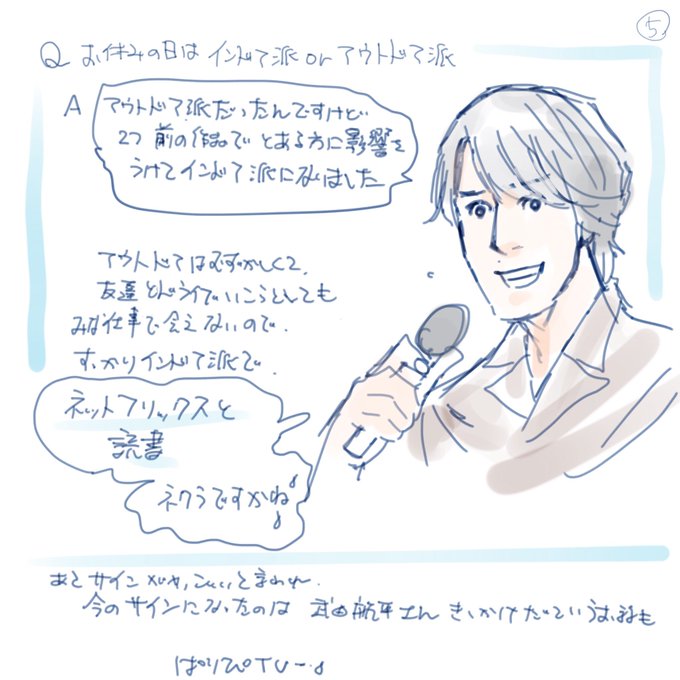 5
Q お休みの日は インドア派 or アウトドア派
A アウトドア派だったんですけど
2つ前の作品で とある方に影響を
うけてインドア派になりました
アウトドアはむずかしくて、
友達とドライブでいこうとしても
みな仕事で会えないので、
すっかりインドア派で、
ネットフリックスと
読書
ネクラですかね
あとサインがかっこいいと言われ、
今のサインになったのは 武田航平さん きっかけだというお話も
ぱりぴTV